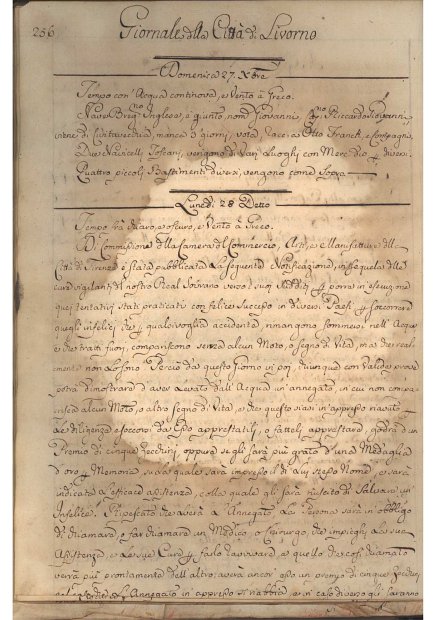 256 Giornale della Città di Livorno
Domenica 27. Xbre
Tempo con Acqua continova, e Vento à Greco.
Nave Brig.no Inglese, è giunto, nom.o Giovanni, Riccardo Giovanni
viene di Civitavecchia, manca 3 giorni, vota, Racc. a Otto Franck, e Compagni
Due Navicelli Toscani, vengono di varj Luoghi con Merc. Div. p diversi
Quattro piccoli Bastimenti diversi, vengono come Sopra
Lunedì 28 Detto
Tempo frà chiaro, e oscuro, e Vento à Greco.
Di Commissione della Camera di Commercio, Arti, e Manifatture della
Città di Firenze è stata pubblicata la seguente Notificazione, in sequela delle
cure vigilanti del nostro Real Sovrano verso i suoi sudditi p porre in esecuzione
quei tentativi stati praticati con felice Successo in diversi Paesi p soccorrere
quegli infelici che p qualsivoglia accidente rimangono sommersi nell' Acque
e che tratti fuori, compariscono senza alcun Moto, o segno di Vita, ma che real-
mente non lo sono. Perciò da questo giorno in poi, chiunque con valide prove
potrà dimostrare d'aver levato dall' Acqua un' annegato, in cui non compa-
risca alcun Moto, o altro segno di Vita, e che questo siasi in appresso riavuto p
le diligenze e soccorsi da Esso apprestatili, o fatteli apprestare, godrà d'un
Premio di cinque Zecchini, oppure se gli sarà più grato d'una Medaglia
d'oro p Memoria, su di quale sarà impresso il di lui stesso Nome, e sarà
indicata l'efficace assistenza, colla quale gli sarà riuscito di Salvare un'
Infelice. Ripescato che averà l' Annegato, la Persona sarà in obbligo
di chiamare, e far chiamare un Medico, o Chirurgo, che impieghi la sua
Assistenza, e le sue Cure p farlo ravvivare, e quello che così chiamato
verrà più prontamente dell' altro, averà ancor esso un premio di cinque Zecchini,
l' Annegato in appresso si riabbia, e in caso diverso gli saranno